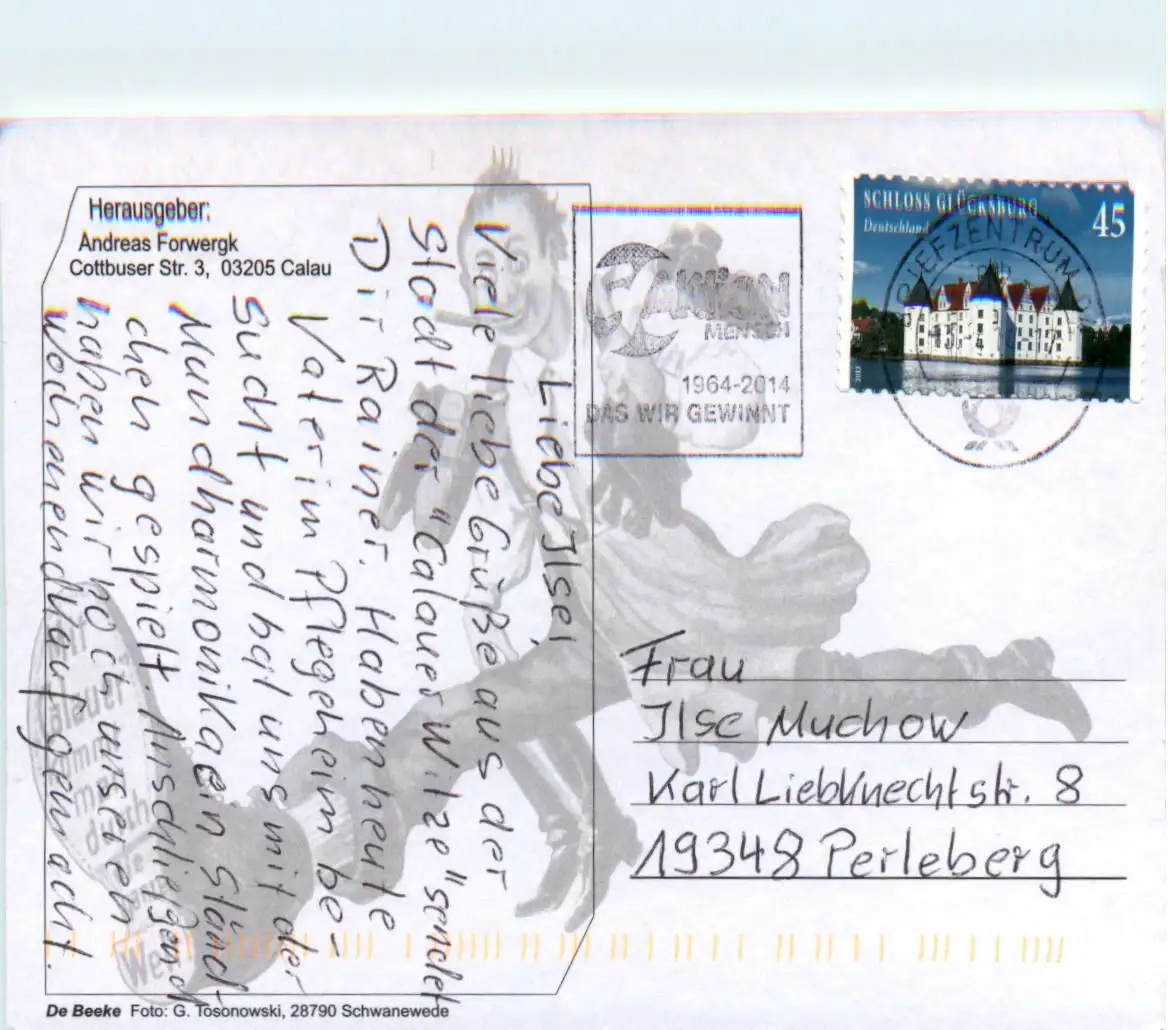 Herausgeber:
Andreas Forwergk
Cottbuser Str. 3, 03205 Calau
Liebe Ilse,
Viele liebe Grüße aus der
Stadt der "Calauer Witze" sendet
Dir Rainer. Haben heute
Vater im Pflegeheim be-
sucht und hat uns mit der
Mundharmonika ein Ständ-
chen gespielt. Anschließend
haben wir noch unseren
Wochenendkauf gemacht.
AKTION
MENSCH
1964-2014
DAS WIR GEWINNT
SCHLOSS GLÜCKSBURG
Deutschland
45
2013
BRIEFZENTRUM
Frau
Ilse Muchow
Karl Liebknechtstr. 8
19348 Perleberg
De Beeke Foto: G. Tosonowski, 28790 Schwanewede